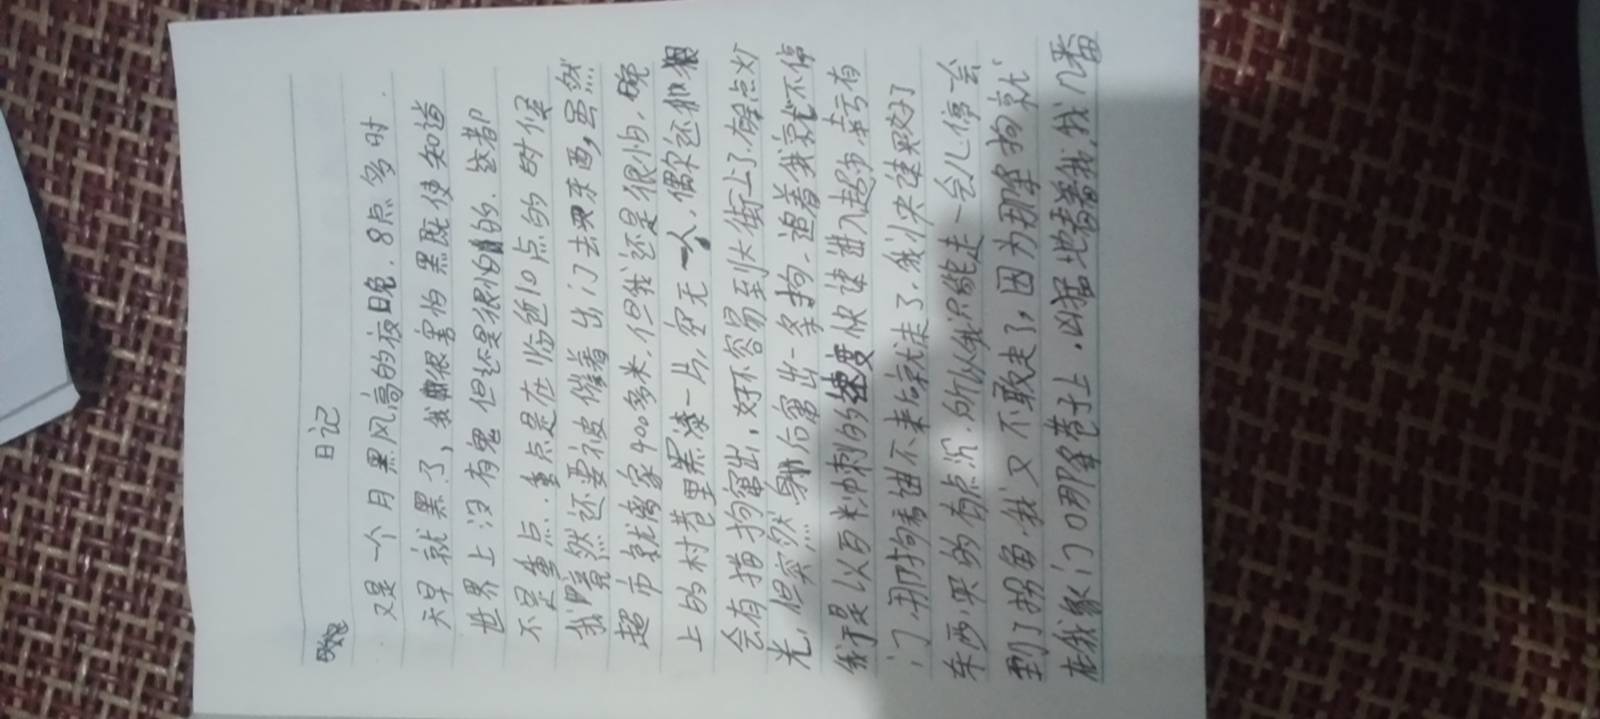 日记
又是一个月黑风高的夜晚.8点多时.
天早就黑了,我很害怕黑既使知道
世界上没有鬼但还是很怕的.这都
不是重点.重点是在临近10点的时候
我竟然还要被催着出门去买东西,虽然
超市就离家400多米.但我还是很怕.晚
上的村巷里黑漆一片,空无一人.偶尔还
会有猫狗窜出.好不容易到大街上了.有点火
光.但突然身后窜出一条狗.追着我就不停
我于是以百米冲刺的速度快速进入超市.幸亏有
门.那狗进不来后就走了.我赶快买好了
东西.买的有点沉.所以我只能走一会儿停会
到了拐角.我又不敢走了,因为那条狗就
在我家门口那条巷子上.凶猛地看着我.我几番